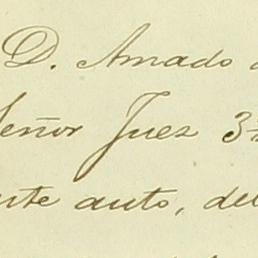 D. Amado
Señor Juez 3
auto, del